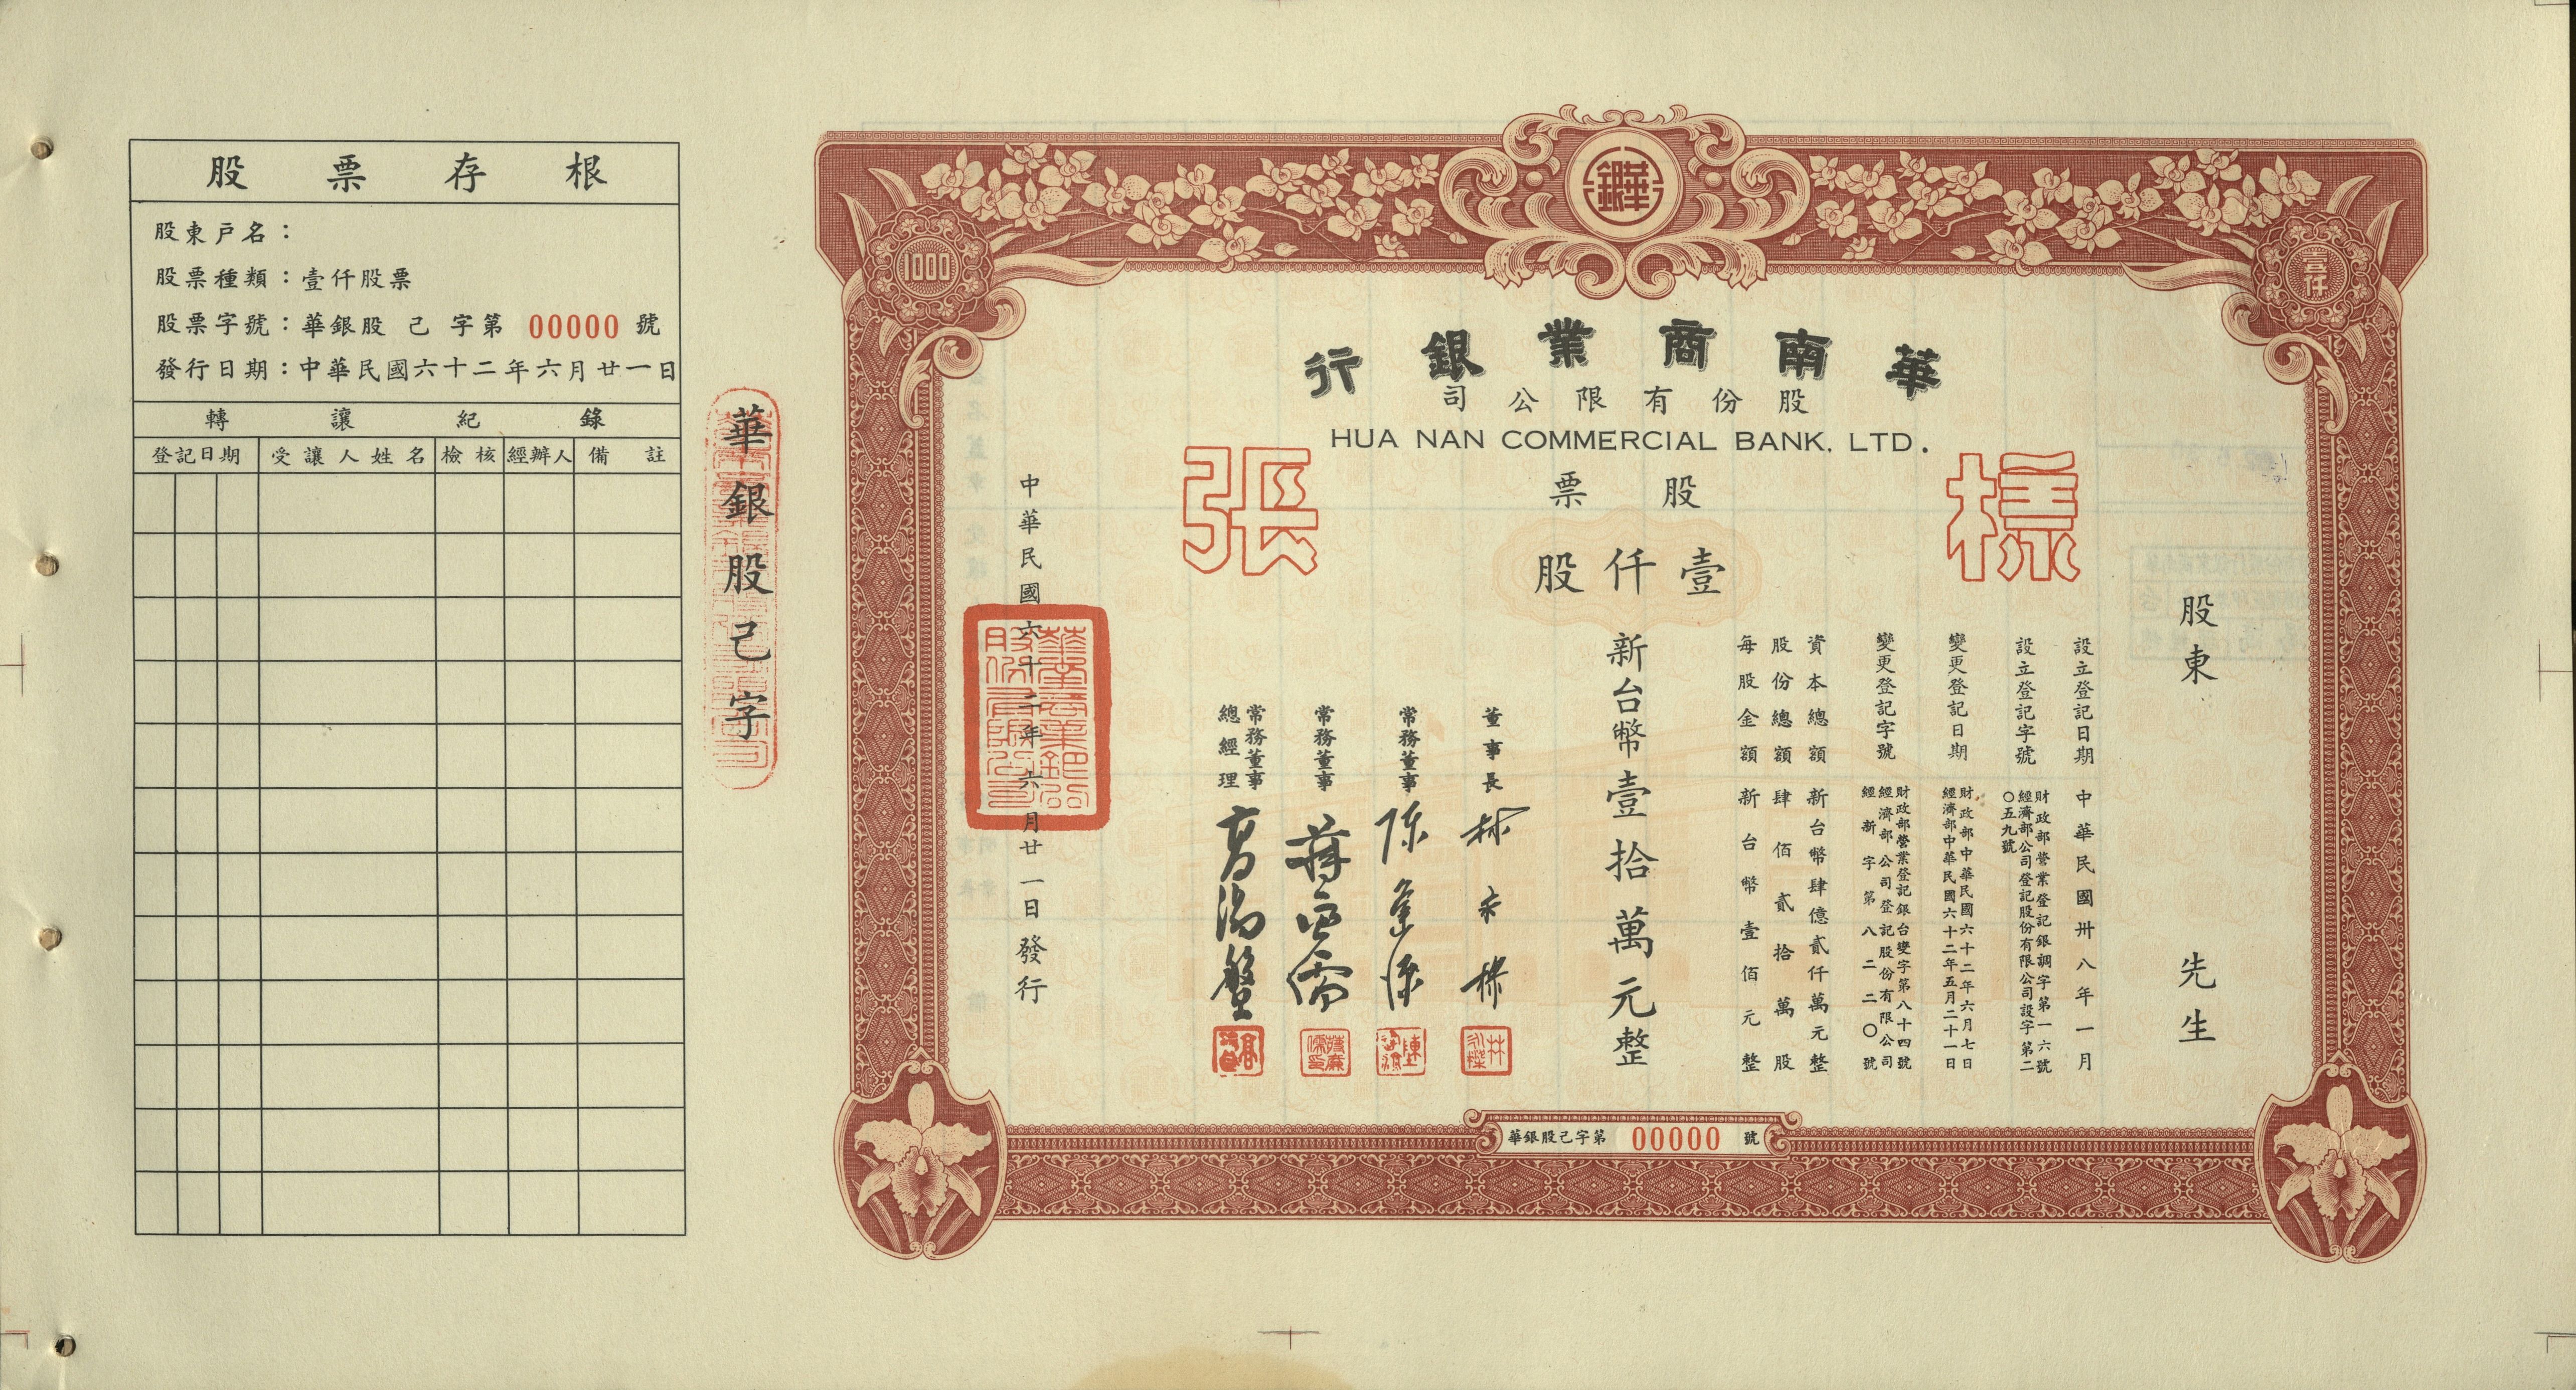 股票存根
股東戶名：
股票種類：壹仟股票
股票字號：華銀股 己 字第 00000 號
發行日期：中華民國六十二年六月廿一日
轉讓紀錄
登記日期 受讓人姓名 檢核 經辦人 備註
華銀股己字
華銀
1000
壹仟
華南商業銀行
股份有限公司
HUA NAN COMMERCIAL BANK, LTD.
樣張
股票
壹仟股
股東 先生
設立登記日期 中華民國卅八年一月
設立登記字號 財政部營業登記銀調字第一六號
經濟部公司登記股份有限公司設字第二
〇五九號
變更登記日期 財政部中華民國六十二年六月七日
經濟部中華民國六十二年五月二十一日
變更登記字號 財政部營業登記銀台變字第八十四號
經濟部公司登記股份有限公司
經新字第八二二〇號
資本總額 新台幣肆億貳仟萬元整
股份總額 肆佰貳拾萬股
每股金額 新台幣壹佰元整
新台幣壹拾萬元整
董事長 林
常務董事 陳
常務董事 蔣
常務董事
總經理 高
中華民國六十二年六月廿一日發行
華銀股己字第 00000 號